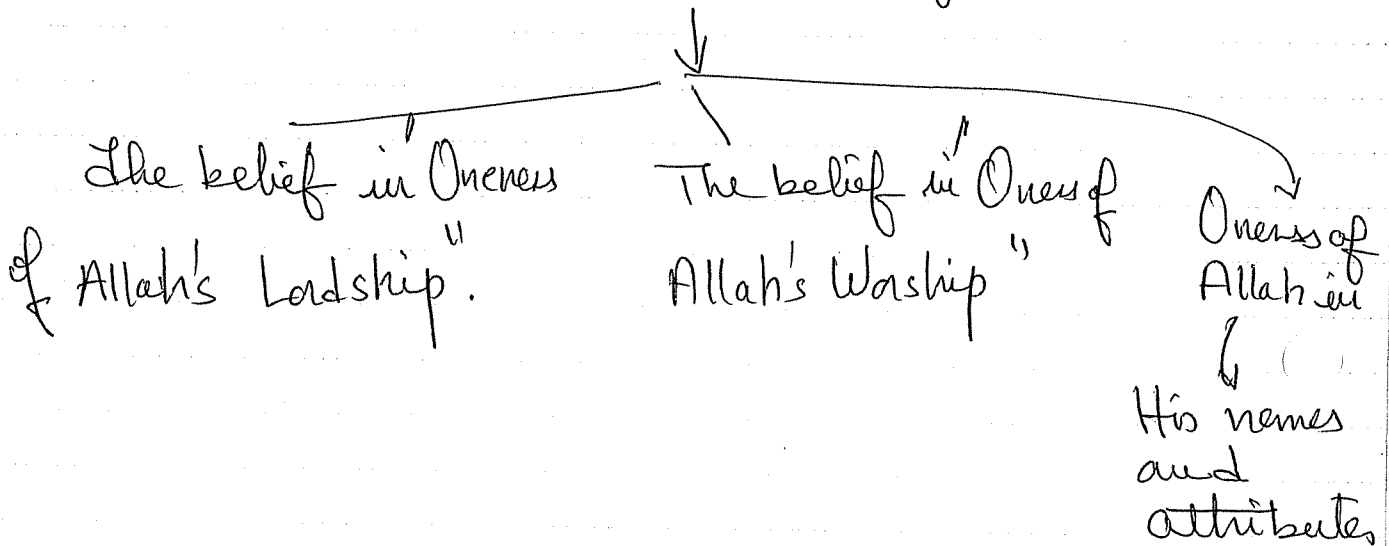 The belief in "Oneness
of Allah's Lordship".
The belief in "Oness of
Allah's Worship"
Oneness of
Allah in
His names
and
attributes